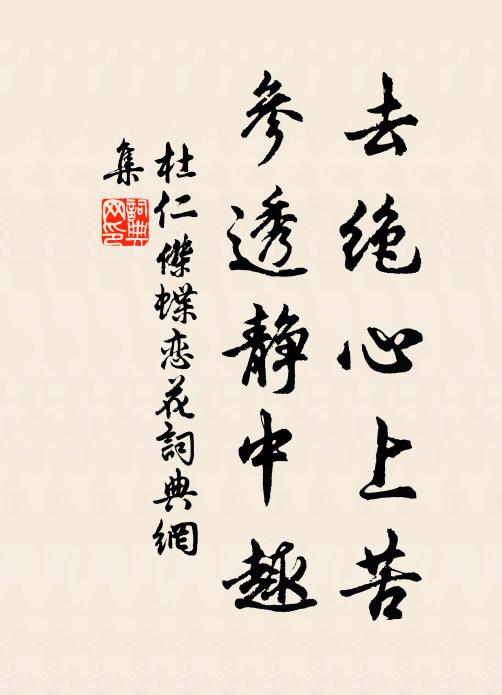 去绝心上苦
参透静中趣
杜仁傑蝶恋花詞典網
集
詞典網印